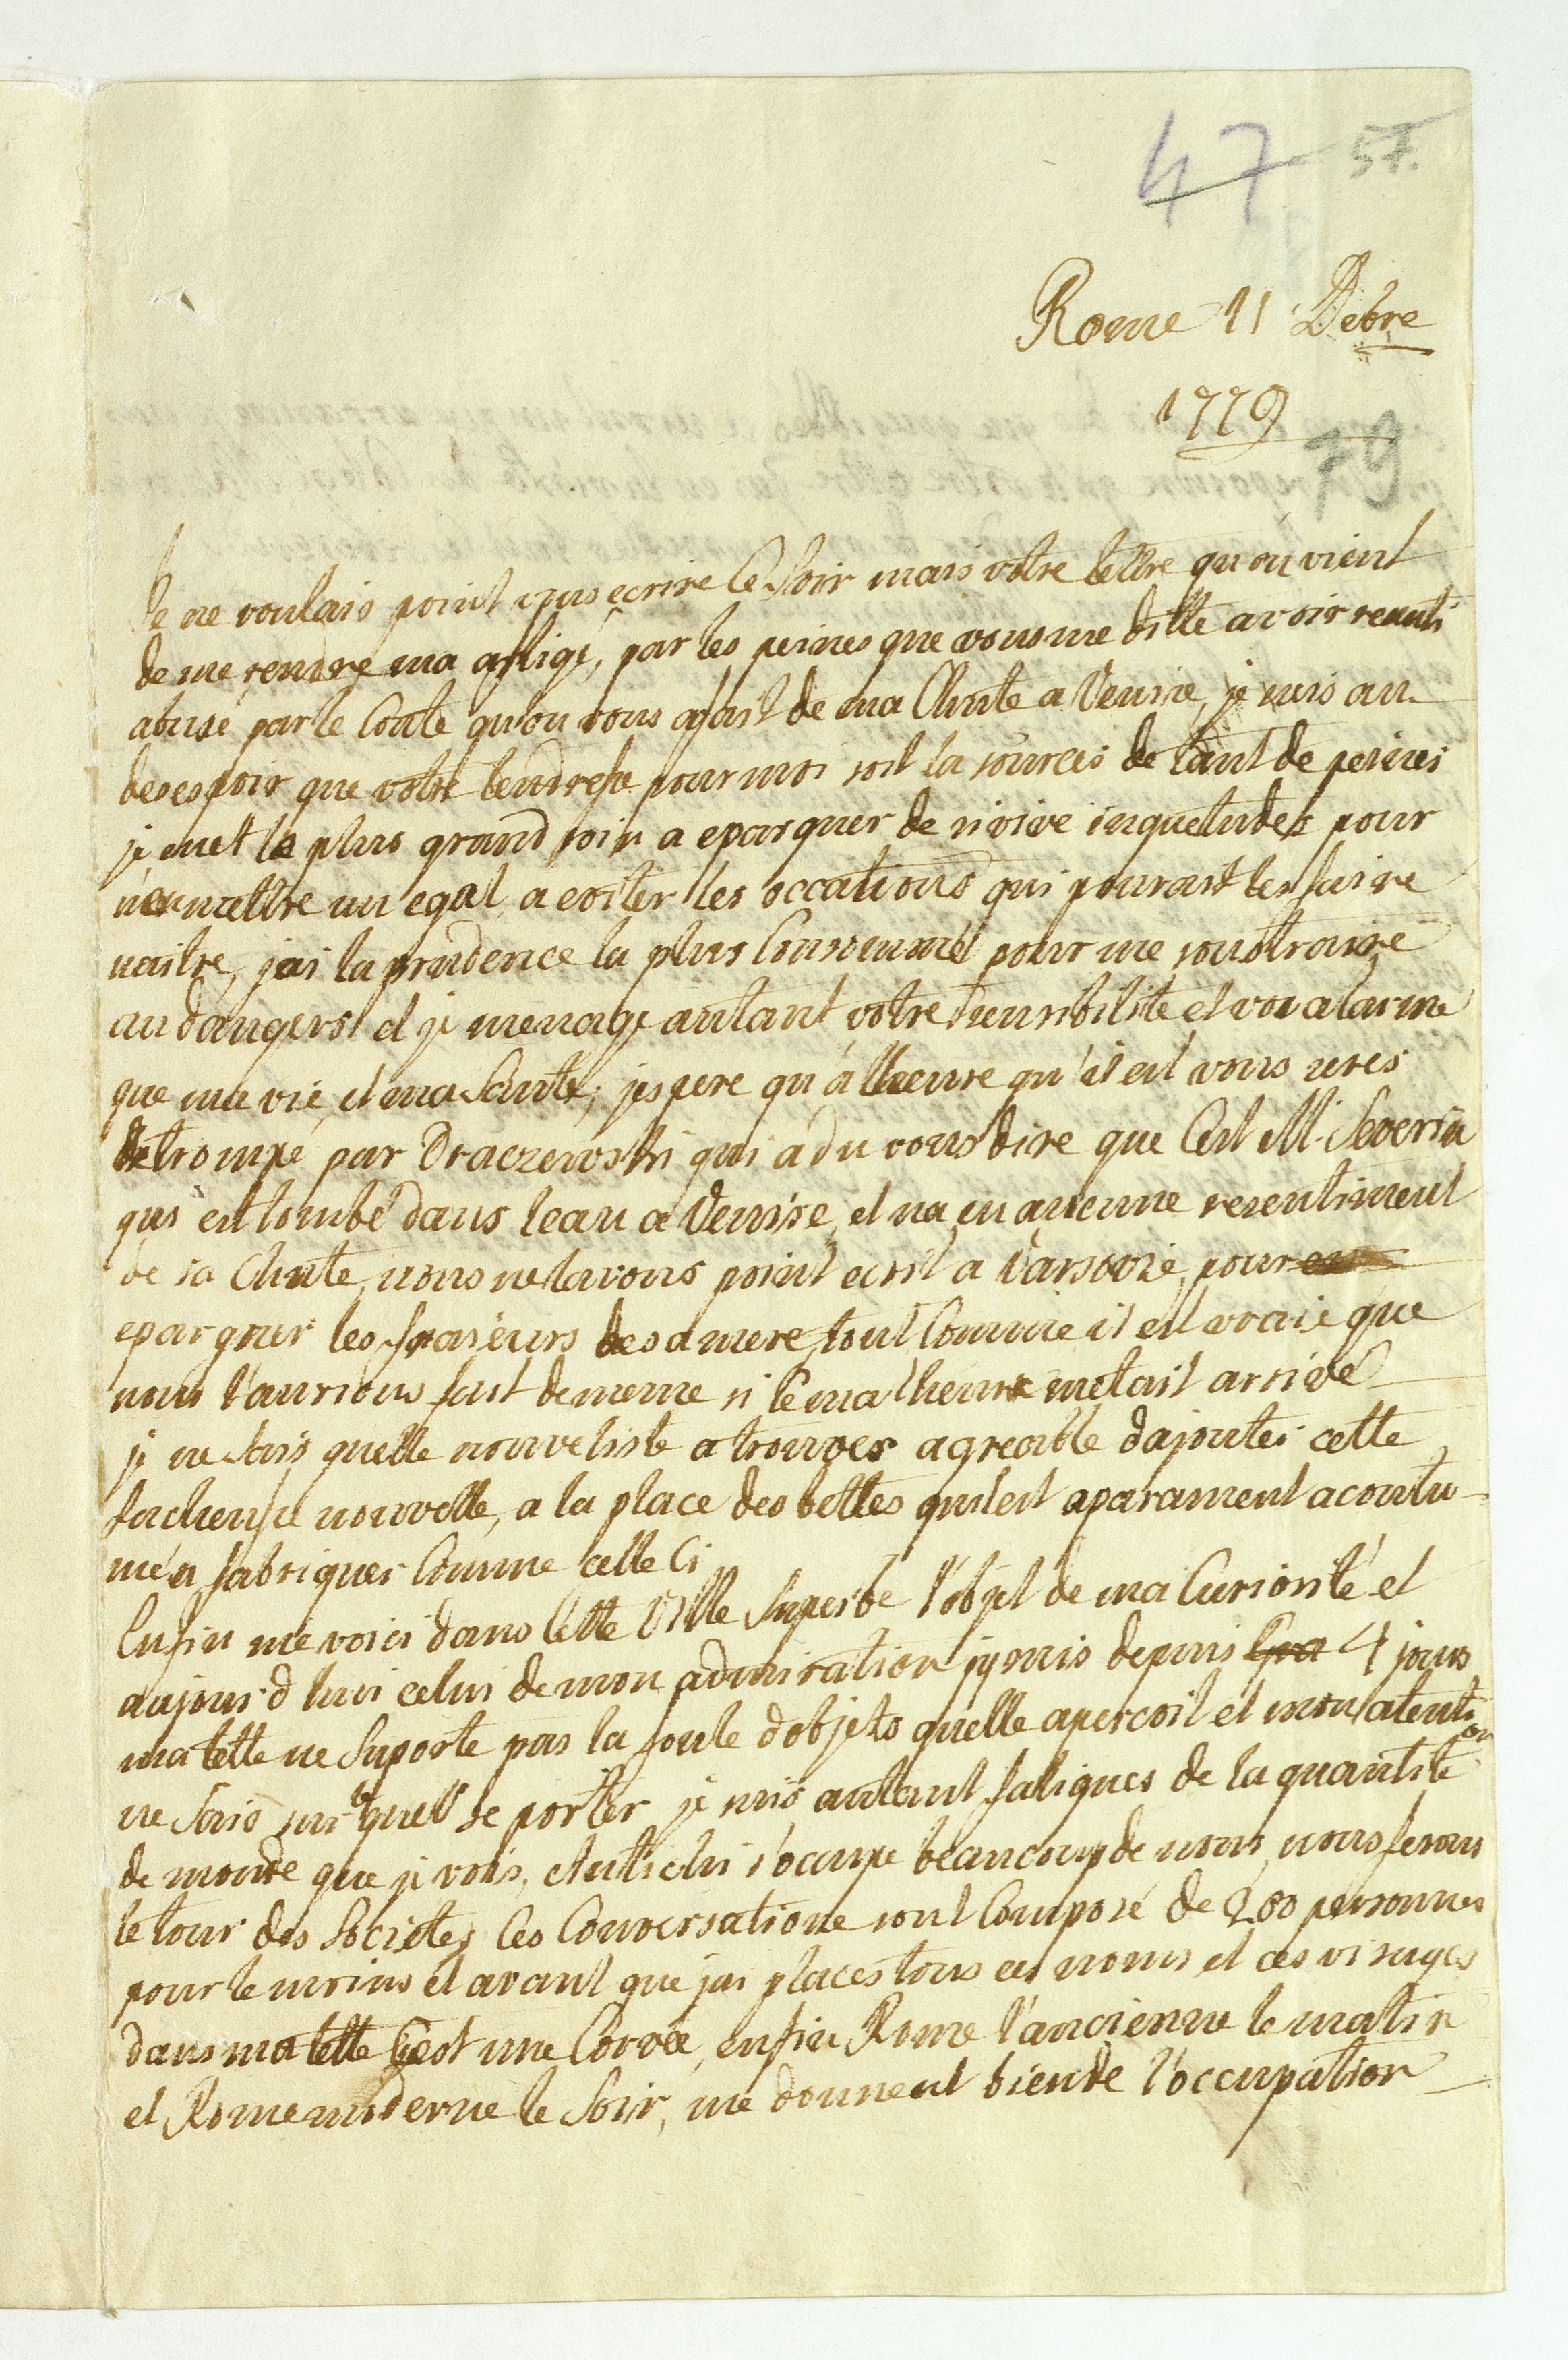 47 57.
Rome 11 Debre
1779
79
Je ne voulais point vous ecrire ce soir mais votre lettre qu'on vient
de me rendre ma afligé, par les peines que vous me ditte avoir resenti
abusé par le Conte qu'on vous a fait de ma Chute a Venise, je suis au
desespoir que votre tendresse pour moi soit la sources de tant de peines
je met le plus grand soin a eparguer de si vive inquetudes pour
n'en mettre un egal a eviter les occations qui pourait les faire
naitre, jai la prudence la plus Consommé pour me soustraire
au dangers et je menage autant votre sensibilite et vos alarme
que ma vie, et ma Santé, jespere qu'a lheure qu'il est vous serés
detrompé par Draczewski qui a du vous dire que Cest Mr. Severin
qui est tombé dans leau a Venise, et na eu aucunne resentiment
de sa Chute, nous ne lavons point ecrit a Varsovie, pour en
epargner les fraieurs de sa mere, tout Comme il est vraie que
nous l'aurions fait de meme si le malheur metait arrivé
je ne sais quelle nouveliste a trouver agreable dajouter cette
facheuse nouvelle, a la place des belles quil est aparament acoutu-
mé a fabriquer Comme celle Ci
Enfin me voici dans cette Ville Superbe l'objet de ma Curiosité et
aujour d hui celui de mon admiration jy suis depuis 4 jours
ma tette ne suporte pas la foule dobjets quelle apercoit et mon atention
ne sais sur le quel se porter je suis autant fatigues de la quantite
de monde que je vois, Antichi s'ocupe beaucoup de nous, nous ferons
le tour des Societes Ces Conversatione sont Composé de 200 personnes
pour le moins et avant que jai places tous ces noms et ces visages
dans ma tette C'est une Corvée, enfin Rome l'ancienne le matin
et Rome moderne le Soir, me donnent bien de l'occupation